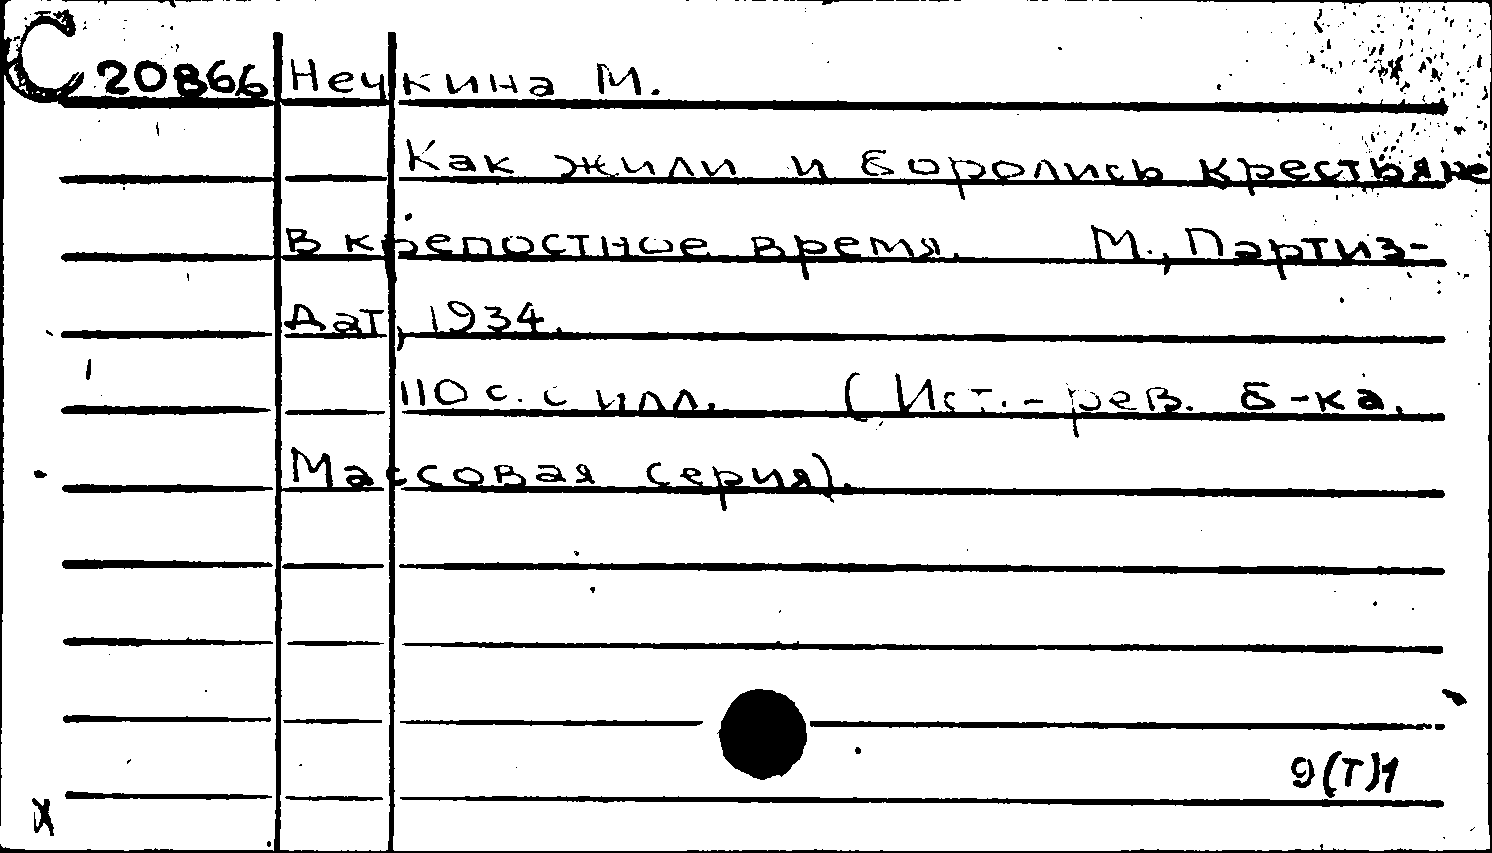 С 20866 Нечкина М.
Как жили и боролись крестьяне
в крепостное время. М., Партиз-
дат, 1934.
110 с. с илл. (Ист.-рев. б-ка.
Массовая серия).
9(Т)1